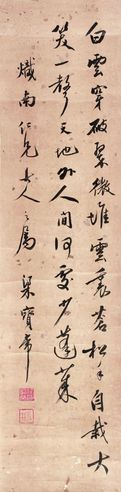 白雲穿破翠微堆雲裏蒼松手自栽大
笑一聲天地外人間何處少蓬萊
熾南仁兄大人之屬 梁寶常